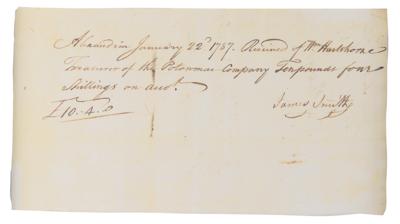 Alexandria January 22d 1787. Received of Wm Hartshorne
Treasurer of the Potowmac Company Ten pounds four
Shillings on acct.
£10.4.0
James Smith